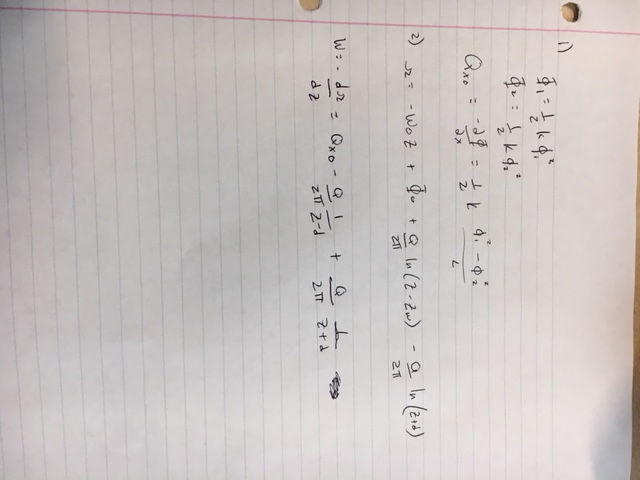 1) Φ₁ = 1/2 k φ₁²
Φ₂ = 1/2 k φ₂²
Qx0 = -dΦ/dx = 1/2 k (φ₁² - φ₂²)/L
2) Ω = -W0 z + Φ0 + Q/2π ln(z-zw) - Q/2π ln(z+d)
W = -dΩ/dz = Qx0 - Q/2π 1/z-d + Q/2π 1/z+d